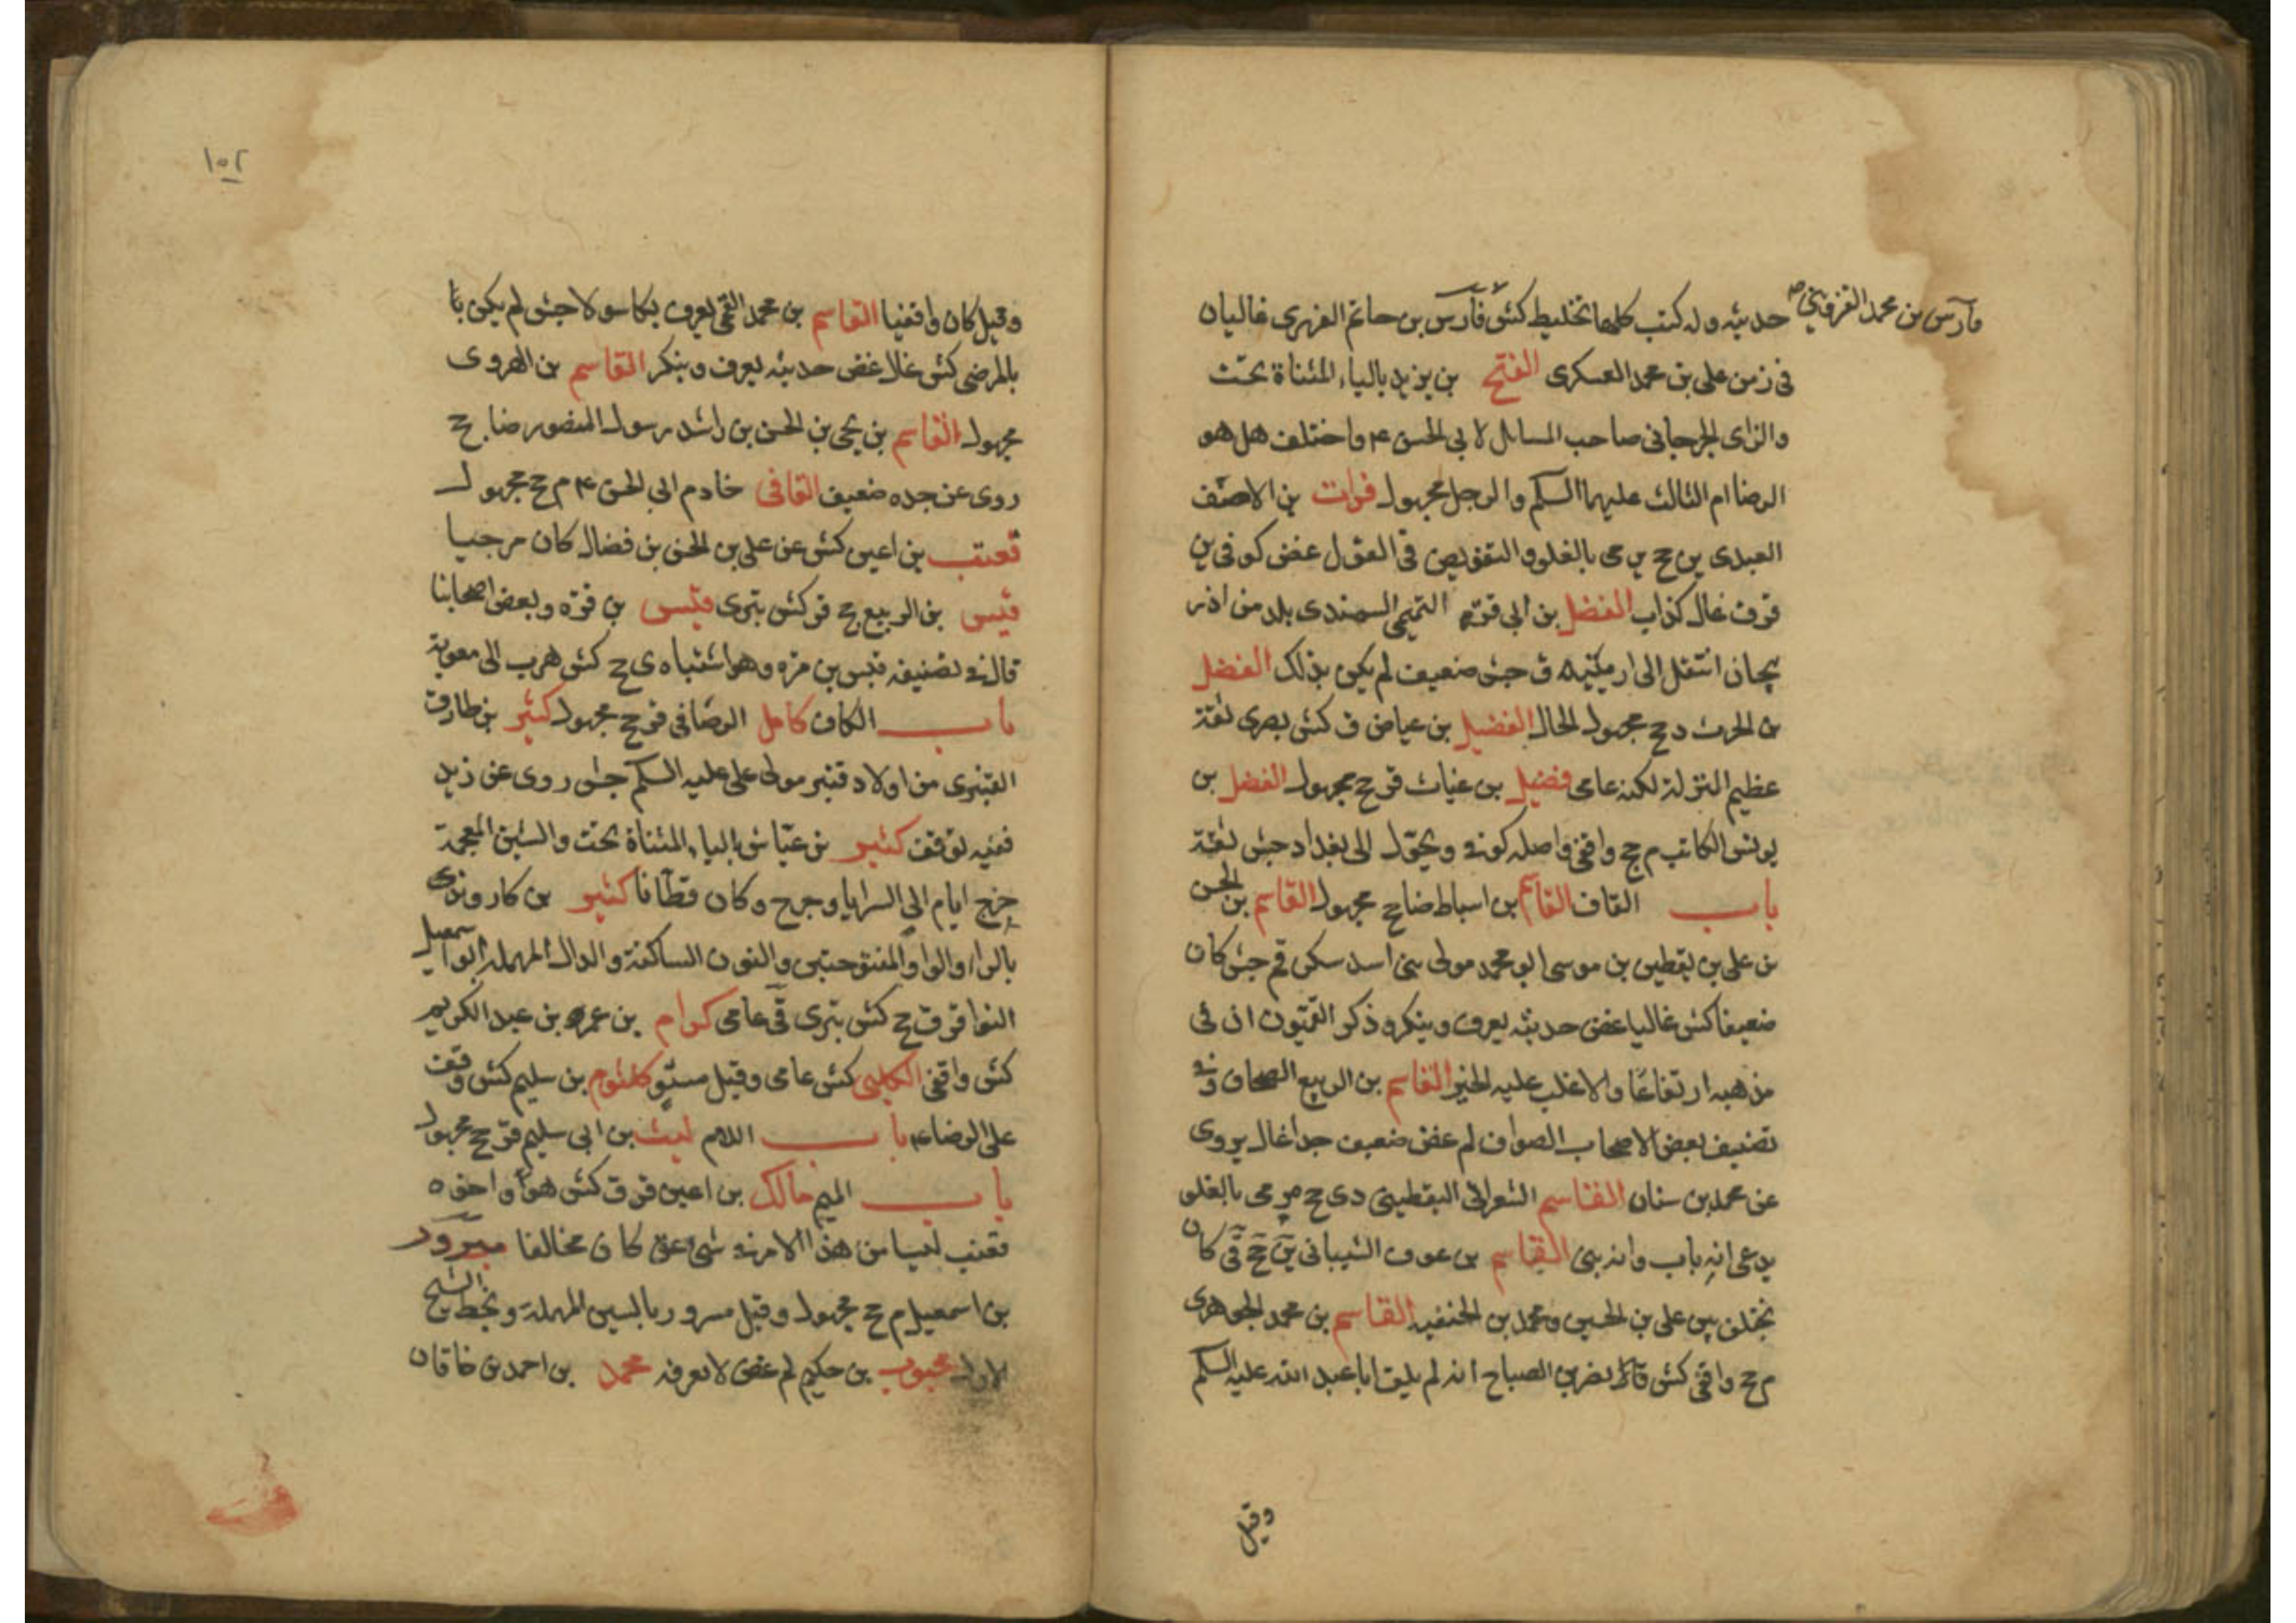 فارس بن محمد القزويني
حديثه وله كتب كلها تخليط كش فارس بن حاتم الفهرى غاليان
فى زمن على بن محمد العسكرى الفتح بن يزيد بالياء المثناة تحت
والزاى الجرجانى صاحب المسايل لابى الحسن ع واختلف هل هو
الرضا ام الثالث عليهما السلم والرجل مجهول فرات بن الاحنف
العبدى ين ح ي رمى بالغلو والتفويض فى القول غض كوفى ين
قر ق غال كذاب الفضل بن ابى قرة التميمى السهندى بلد من اذر
بيجان انتقل الى ارمينيه ق جش ضعيف لم يكن بذلك الفضل
بن الحرث د ح مجهول الحال الفضيل بن عياض ق كش بصرى ثقة
عظيم المنزلة لكنه عامى فضيل بن غياث قر ح مجهول الفضل بن
يونس الكاتب م ح واقفى واصله كوفى وتحول الى بغداد جش ثقة
باب القاف القاسم بن اسباط ضا ح مجهول القاسم بن الحسن
بن على بن يقطين بن موسى ابو محمد مولى بنى اسد سكن قم جش كان
ضعيفا كش غاليا غض حديثه يعرف وينكر وذكر القميون ان فى
مذهبه ارتفاعا والاغلب عليه الخير القاسم بن الربيع الصحاف وفى
تصنيف بعض الاصحاب الصواف لم غض ضعيف جدا غال يروى
عن محمد بن سنان القاسم الشعرانى اليقطينى دى ح رمى بالغلو
يدعى انه باب وانه نبى القاسم بن عوف الشيبانى ين ح قى كان
يختلف بين على بن الحسين ومحمد بن الحنفيه القاسم بن محمد الجوهرى
م ح واقفى كش قال نصر بن الصباح انه لم يلق ابا عبد الله عليه السلم
وقيل
١٥٢
وقيل كان واقفيا القاسم بن محمد القمى يعرف بكاسولا جش لم يكن با
بالمرضى كش غلا غض حديثه يعرف وينكر القاسم بن الهروى
مجهول القاسم بن يحيى بن الحسن بن راشد رسول المنصور ضا ج
روى عن جده ضعيف القافى خادم ابى الحسن ع م ح مجهول
قعنب بن اعين كش عن على بن الحسن بن فضال كان مرجيا
قيس بن الربيع ح قر كش بترى قيس بن قرة وبعض اصحابنا
قال فى تصنيفه قيس بن مرة وهو اشتباه ى ح كش هرب الى معوية
باب الكاف كامل الرصافى قر ح مجهول كثير بن طارق
القنبرى من اولاد قنبر مولى على عليه السلم جش روى عن زيد
ففيه توقف كثير بن عياش بالياء المثناة تحت والشين المعجمة
خرج ايام ابى السرايا وجرح وكان قطانا كثير بن كاروندى
بالراء والواو المفتوحتين والنون الساكنة والدال المهملة ابو اسمعيل
النوا قر ق ح كش بترى قى عامى كرام بن عمرو بن عبد الكريم
كش واقفى الكلبى كش عامى وقيل مستو كلثوم بن سليم كش وقفت
على الرضا ع باب اللام ليث بن ابى سليم قر ح مجهول
باب الميم مالك بن اعين قر ق كش هو واخوه
قعنب ليسا من هذا الامر فى شىء عق كان مخالفا
بن اسمعيل م ح مجهول وقيل مسرور بالسين المهملة وبخط الشيخ
الاول محبوب بن حكيم لم غض لا نعرفه محمد بن احمد بن خاقان